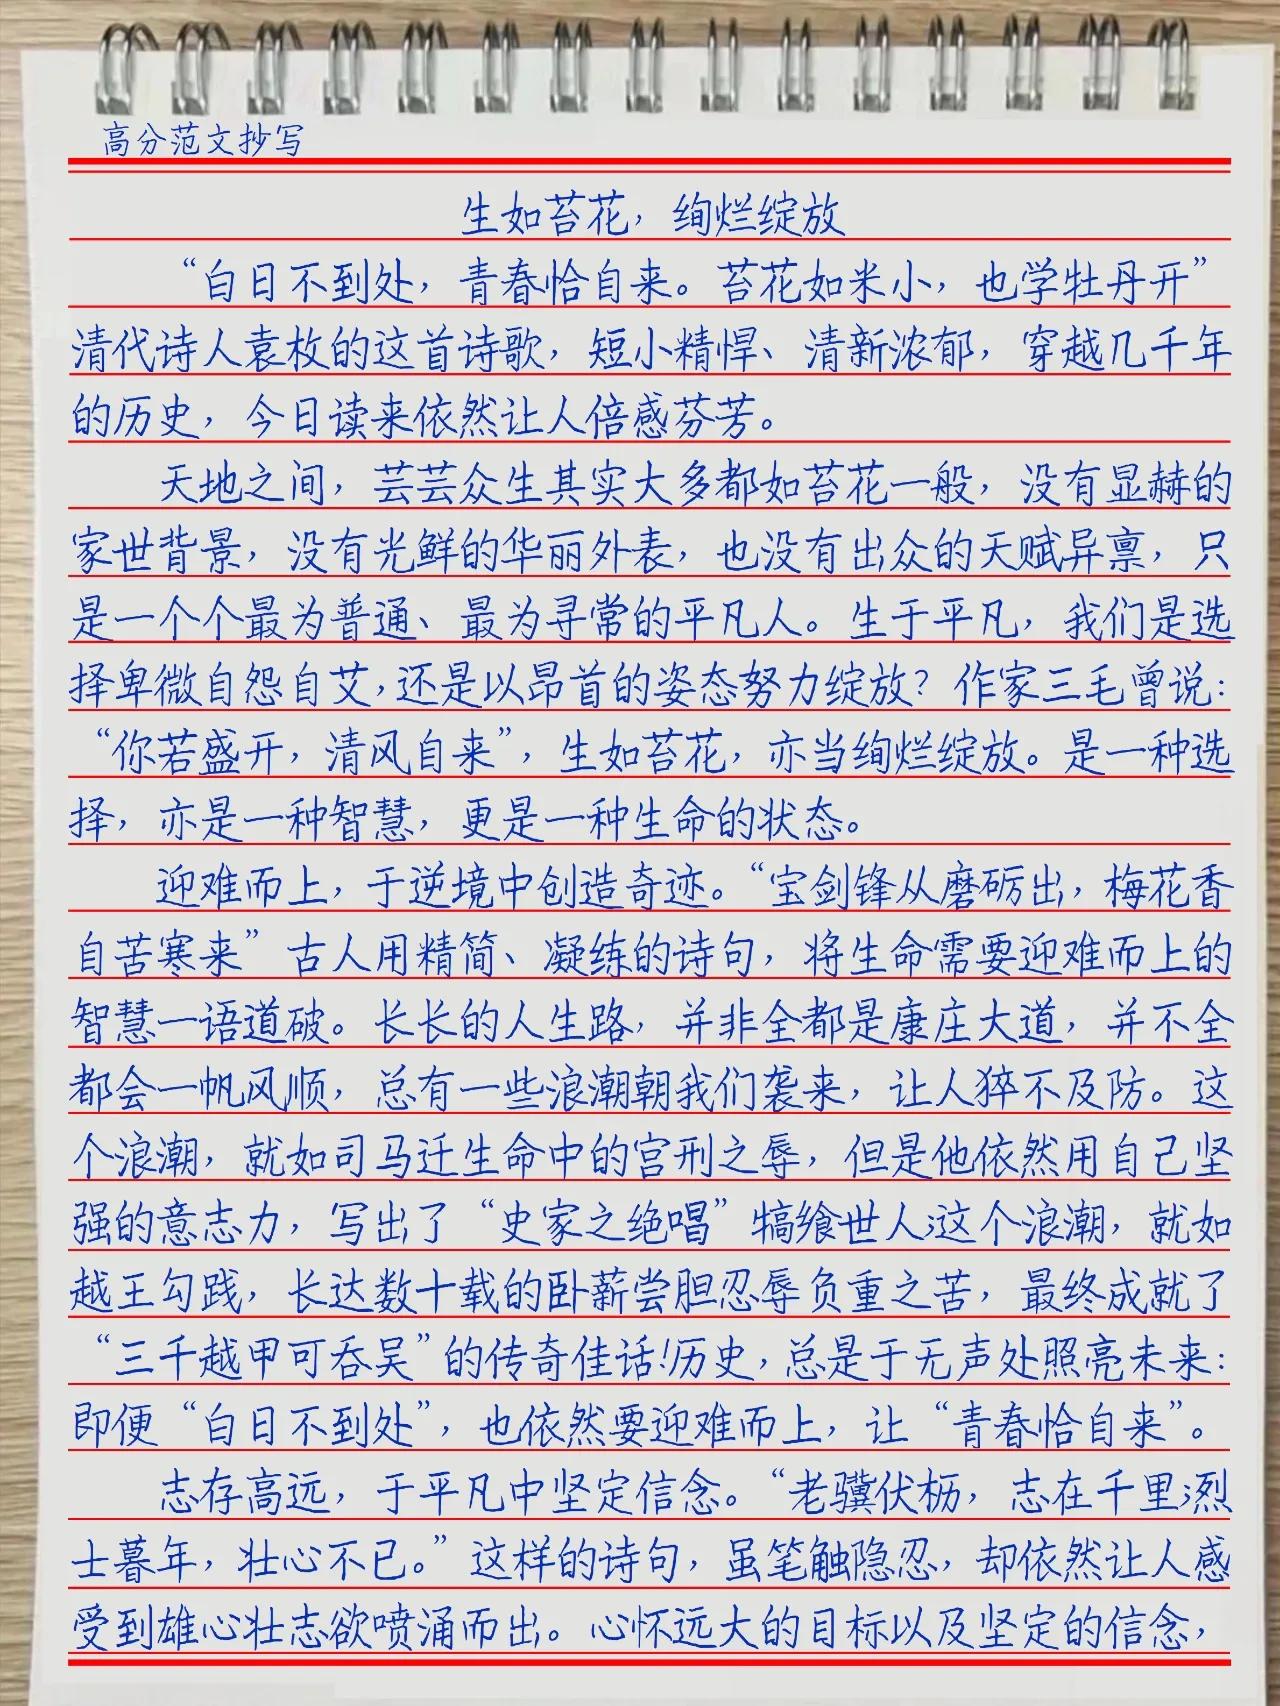 高分范文抄写
生如苔花，绚烂绽放
“白日不到处，青春恰自来。苔花如米小，也学牡丹开”
清代诗人袁枚的这首诗歌，短小精悍、清新浓郁，穿越几千年
的历史，今日读来依然让人倍感芬芳。
天地之间，芸芸众生其实大多都如苔花一般，没有显赫的
家世背景，没有光鲜的华丽外表，也没有出众的天赋异禀，只
是一个个最为普通、最为寻常的平凡人。生于平凡，我们是选
择卑微自怨自艾，还是以昂首的姿态努力绽放？作家三毛曾说：
“你若盛开，清风自来”，生如苔花，亦当绚烂绽放。是一种选
择，亦是一种智慧，更是一种生命的状态。
迎难而上，于逆境中创造奇迹。“宝剑锋从磨砺出，梅花香
自苦寒来”古人用精简、凝练的诗句，将生命需要迎难而上的
智慧一语道破。长长的人生路，并非全都是康庄大道，并不全
都会一帆风顺，总有一些浪潮朝我们袭来，让人猝不及防。这
个浪潮，就如司马迁生命中的宫刑之辱，但是他依然用自己坚
强的意志力，写出了“史家之绝唱”犒飨世人；这个浪潮，就如
越王勾践，长达数十载的卧薪尝胆忍辱负重之苦，最终成就了
“三千越甲可吞吴”的传奇佳话！历史，总是于无声处照亮未来：
即便“白日不到处”，也依然要迎难而上，让“青春恰自来”。
志存高远，于平凡中坚定信念。“老骥伏枥，志在千里；烈
士暮年，壮心不已。”这样的诗句，虽笔触隐忍，却依然让人感
受到雄心壮志欲喷涌而出。心怀远大的目标以及坚定的信念，